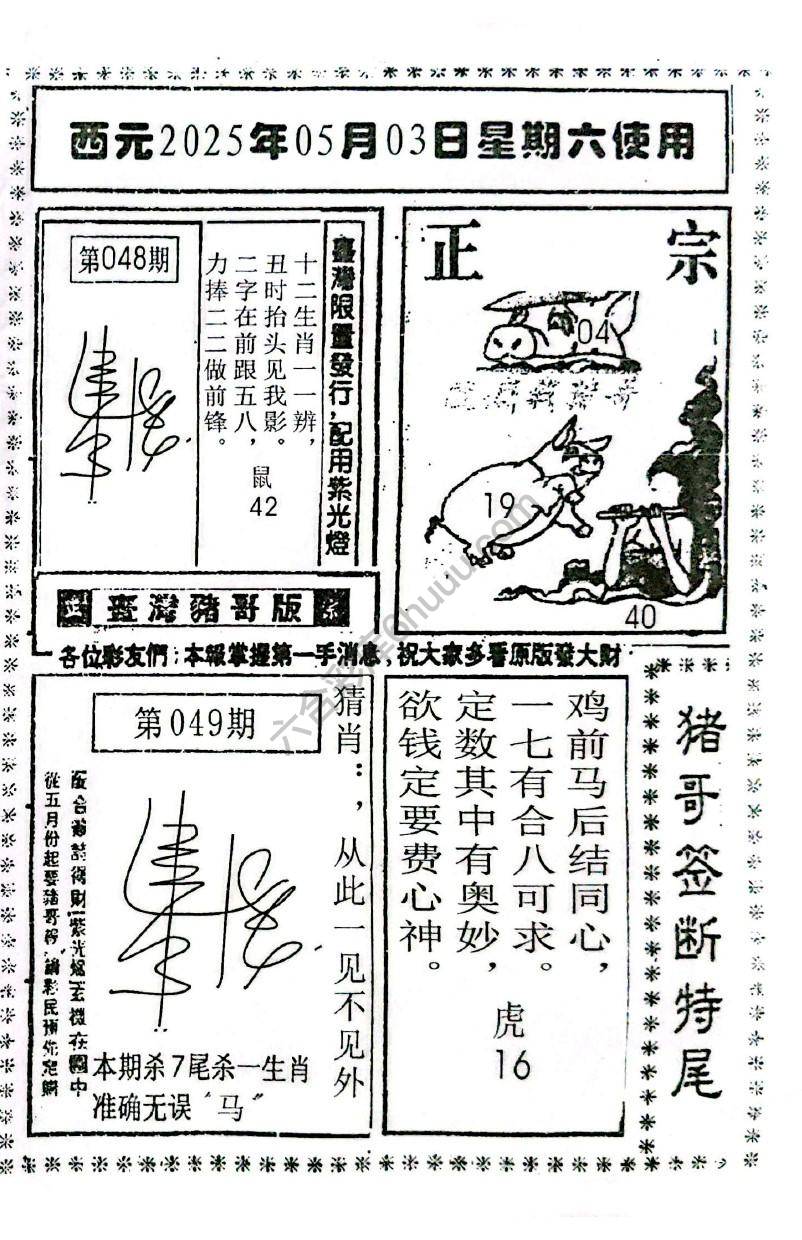 西元2025年05月03日星期六使用
第048期
臺灣限量發行,配用紫光燈
十二生肖一一辨，
丑时抬头见我影。
二字在前跟五八，
力捧二二做前锋。
鼠
42
正宗
04
19
40
臺灣豬哥版
各位彩友們:本報掌握第一手消息,祝大家多看原版發大財
第049期
猜肖：，从此一见不见外
從五月份起要豬哥報
本期杀7尾杀一生肖
准确无误“马”
鸡前马后结同心，
一七有合八可求。
定数其中有奥妙，
欲钱定要费心神。
虎
16
猪哥签断特尾
六合彩库6huuu.com